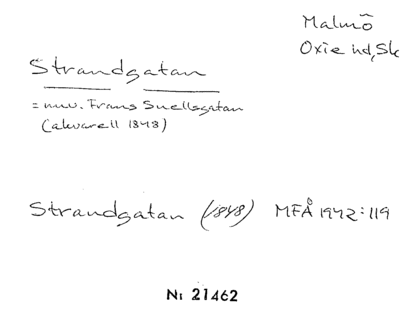 Malmö
Oxie hd, Sk
Strandgatan
= nuv. Frans Suellsgatan
(akvarell 1848)
Strandgatan (1848) MFÅ 1942:119
Nı 21462